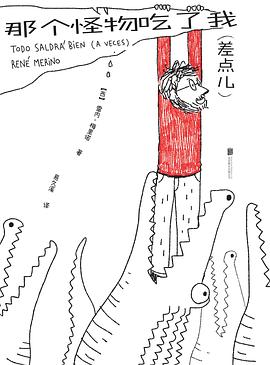 那个怪物吃了我
(差点儿)
TODO SALDRÁ BIEN (A VECES)
RENÉ MERINO
[西] 雷内·梅里诺 著
译